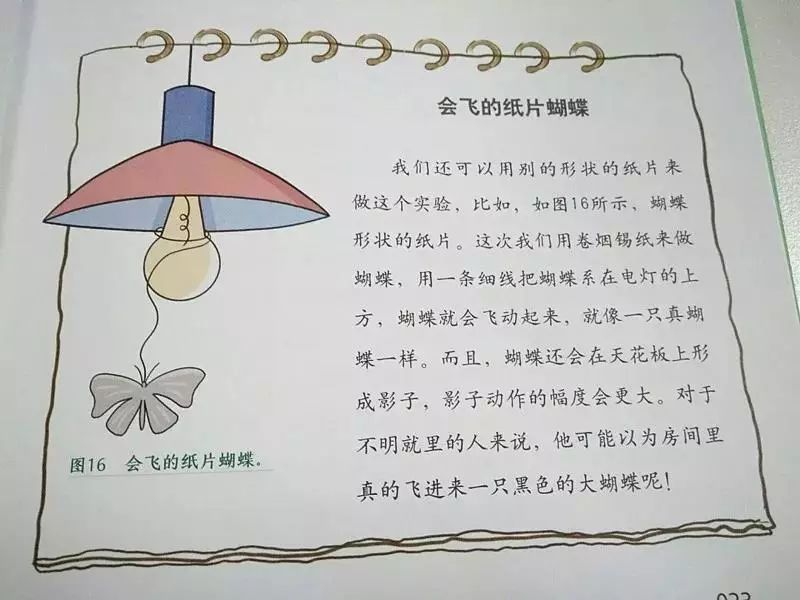 会飞的纸片蝴蝶
我们还可以用别的形状的纸片来
做这个实验，比如，如图16所示，蝴蝶
形状的纸片。这次我们用卷烟锡纸来做
蝴蝶，用一条细线把蝴蝶系在电灯的上
方，蝴蝶就会飞动起来，就像一只真蝴
蝶一样。而且，蝴蝶还会在天花板上形
成影子，影子动作的幅度会更大。对于
不明就里的人来说，他可能以为房间里
真的飞进来一只黑色的大蝴蝶呢！
图16 会飞的纸片蝴蝶。